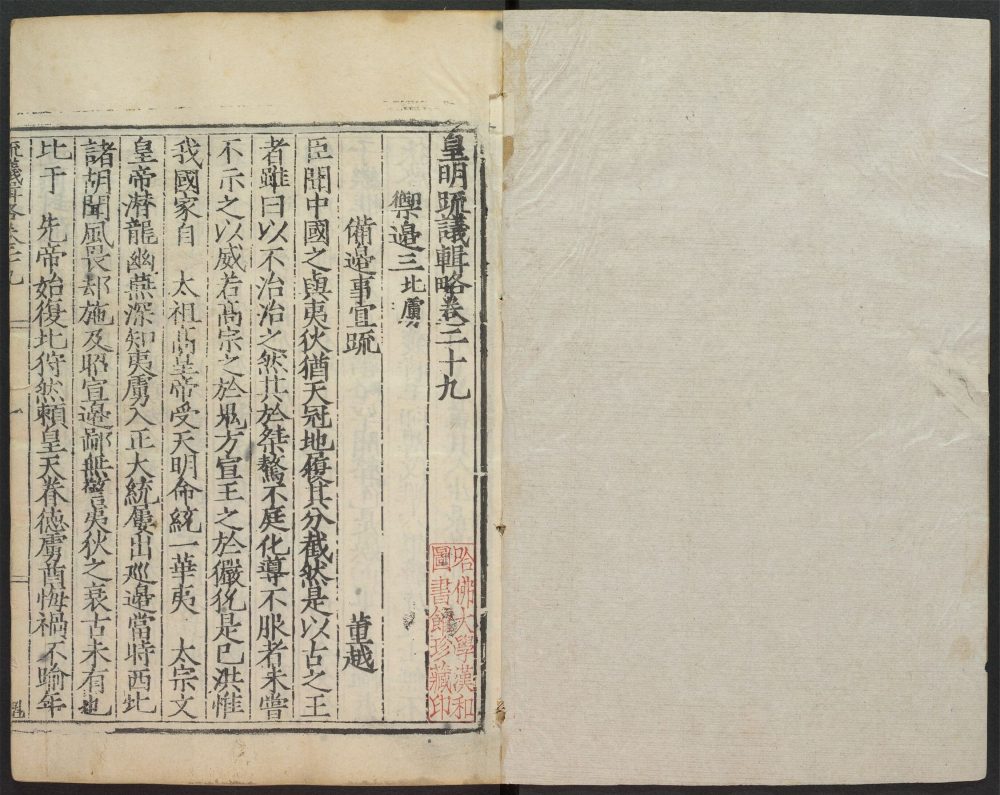 皇明疏議輯略卷三十九
禦邊三北虜
備邊事宜疏
董越
臣聞中國之與夷狄猶天冠地履其分截然是以古之王
者雖曰以不治治之然其於桀驁不庭化導不服者未嘗
不示之以威若高宗之於鬼方宣王之於玁狁是已洪惟
我國家自 太祖高皇帝受天明命統一華夷 太宗文
皇帝潛龍幽燕深知夷虜入正大統屢出巡邊當時西北
諸胡聞風畏却施及昭宣邊鄙無警夷狄之衰古未有也
比于 先帝始復北狩然賴皇天眷德虜酋悔禍不踰年
疏議輯略卷三十九
一
哈佛大學漢和
圖書館珍藏印